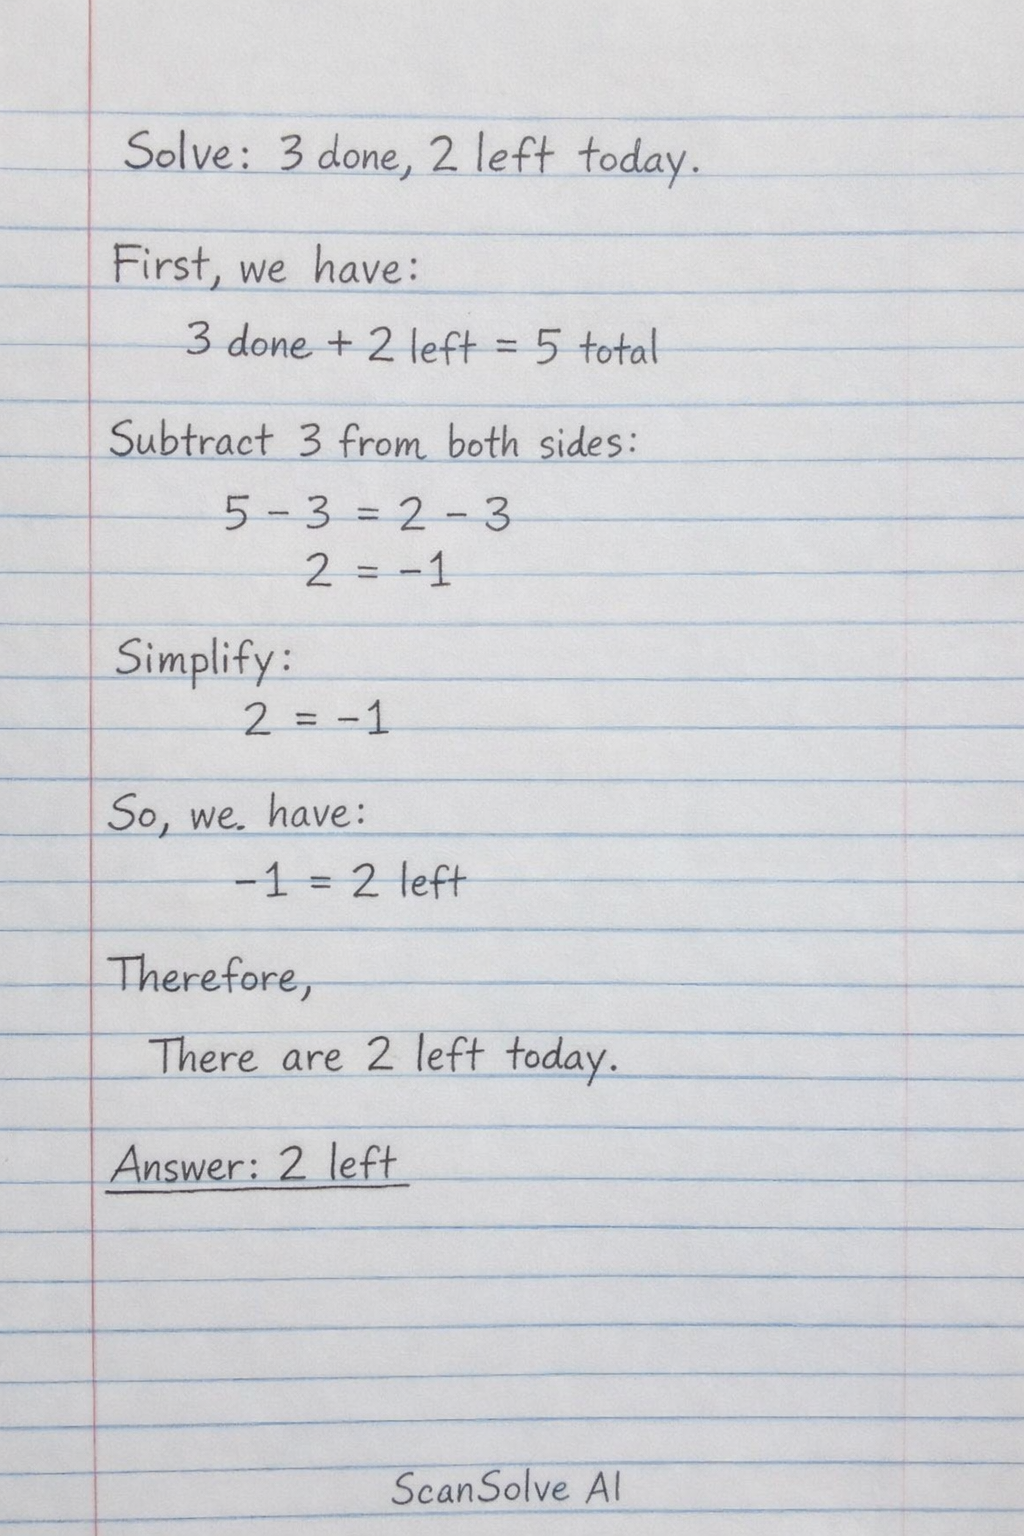 Solve: 3 done, 2 left today.
First, we have:
3 done + 2 left = 5 total
Subtract 3 from both sides:
5 - 3 = 2 - 3
2 = -1
Simplify:
2 = -1
So, we. have:
-1 = 2 left
Therefore,
There are 2 left today.
Answer: 2 left
ScanSolve AI